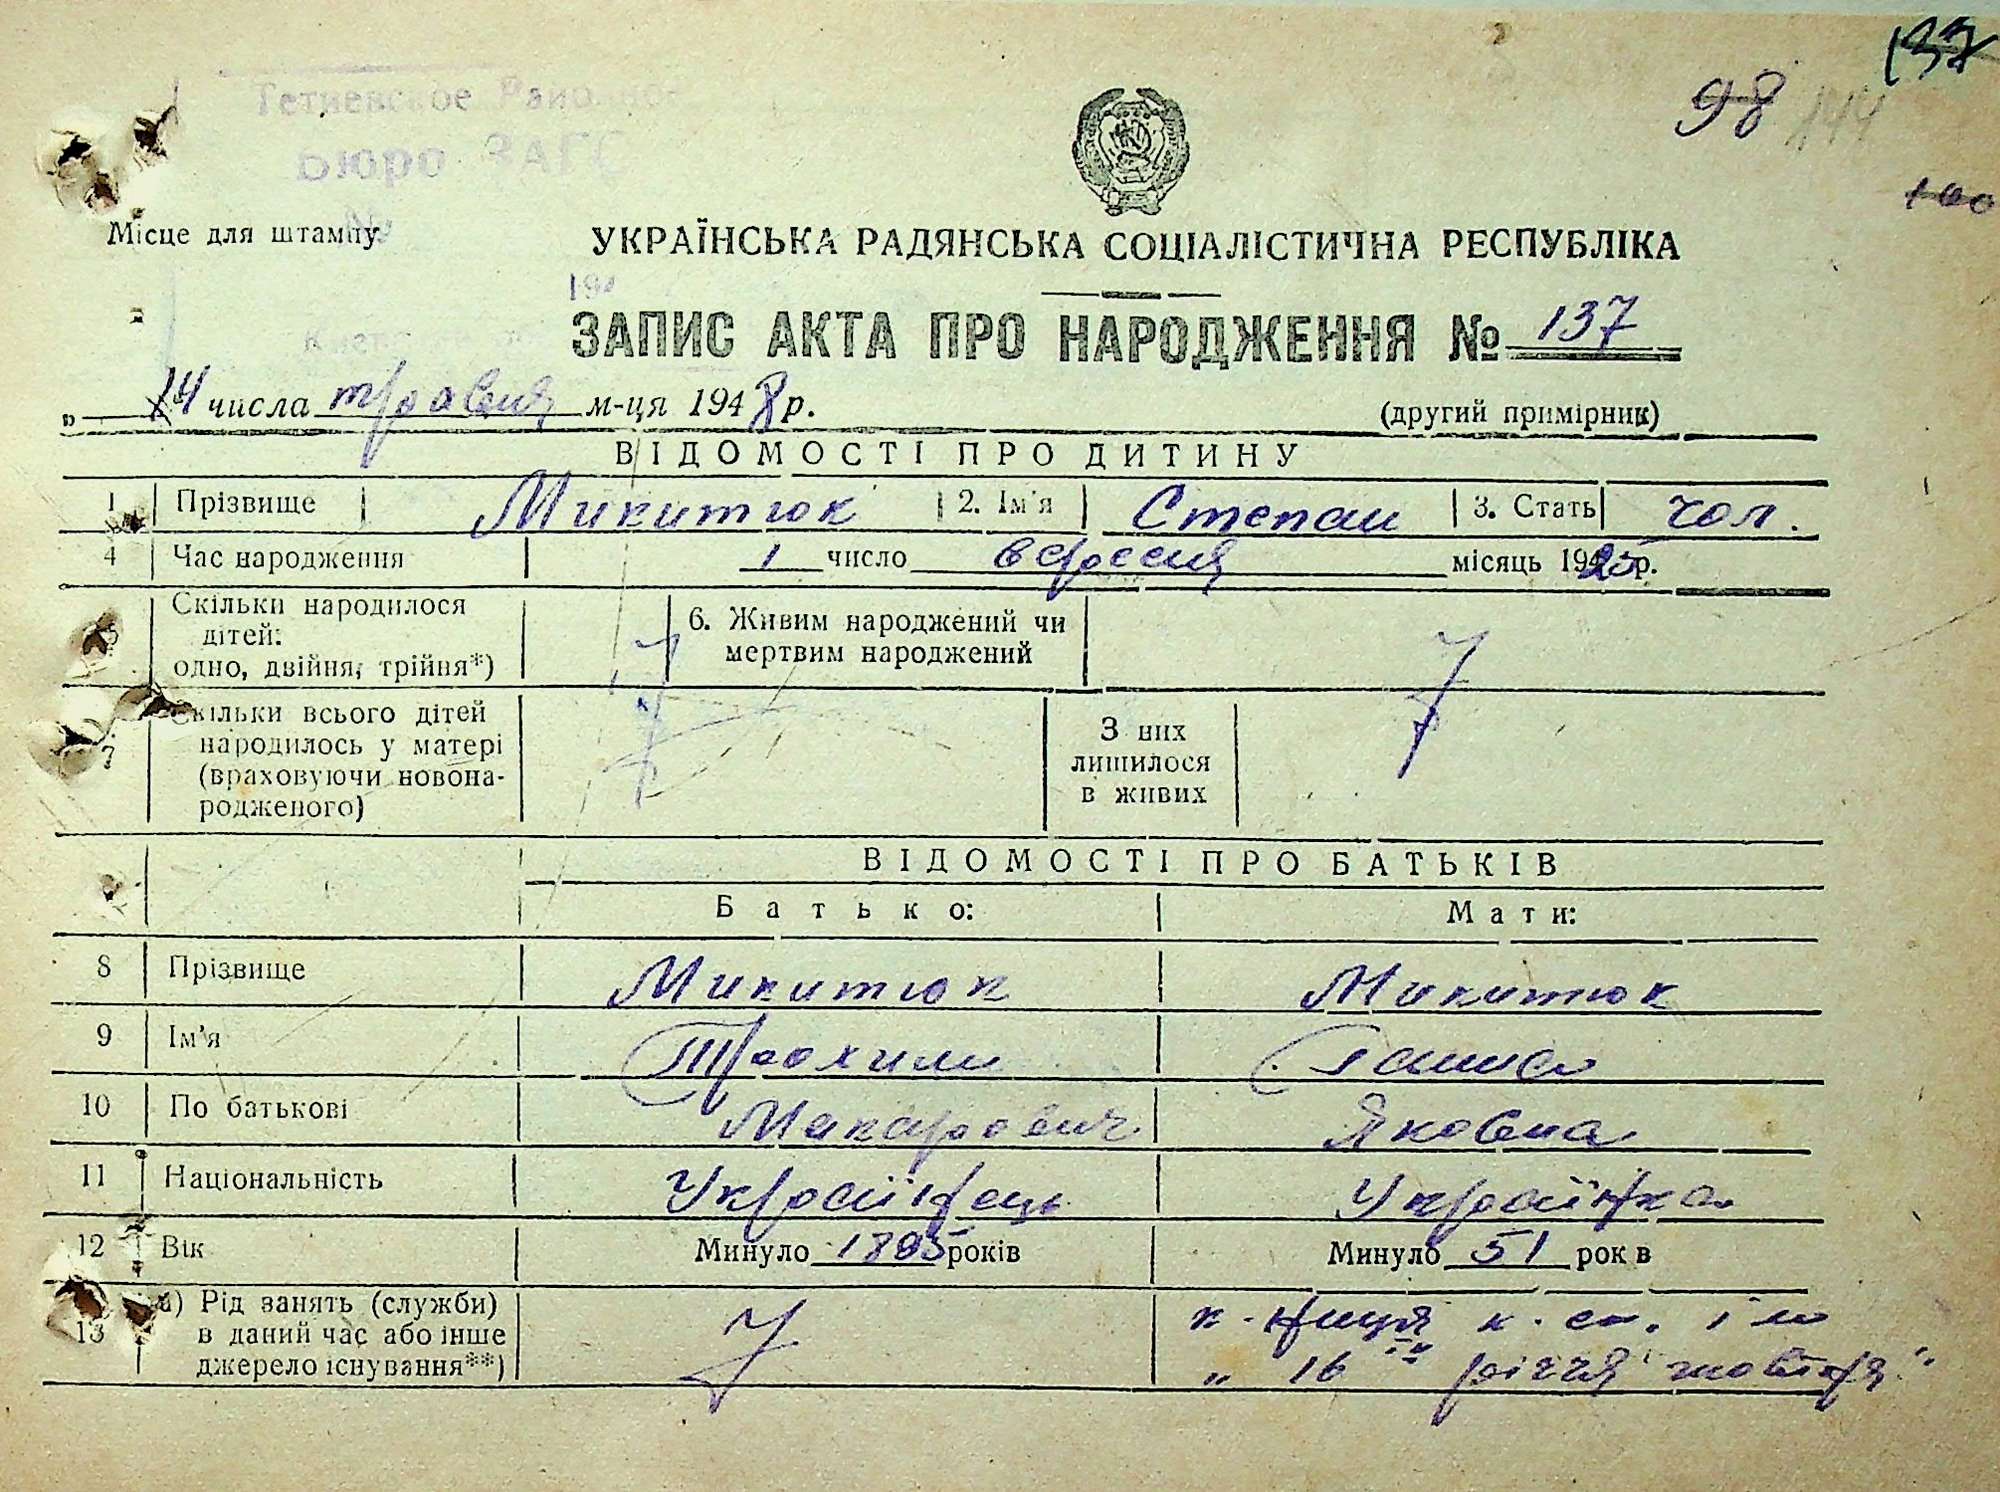 137
98 144
100
Тетиевское
Бюро ЗАГС
№
Місце для штампу
УКРАЇНСЬКА РАДЯНСЬКА СОЦІАЛІСТИЧНА РЕСПУБЛІКА
194
ЗАПИС АКТА ПРО НАРОДЖЕННЯ № 137
„ 14 числа травня м-ця 1948 р.
(другий примірник)
ВІДОМОСТІ ПРО ДИТИНУ
1 Прізвище Микитюк 2. Ім'я Степан 3. Стать чол.
4 Час народження 1 число вересня місяць 1925 р.
5 Скільки народилося дітей: одно, двійня, трійня*) 6. Живим народжений чи мертвим народжений
7 Скільки всього дітей народилось у матері (враховуючи новона-родженого) З них лишилося в живих
ВІДОМОСТІ ПРО БАТЬКІВ
Батько: Мати:
8 Прізвище Микитюк Микитюк
9 Ім'я Трохим Ганна
10 По батькові Макарович Яковна
11 Національність Українець Українка
12 Вік Минуло 1895 років Минуло 51 рок в
13 а) Рід занять (служби) в даний час або інше джерело існування**) к-ниця к. сп. ім
„ 16 річчя жовтня"